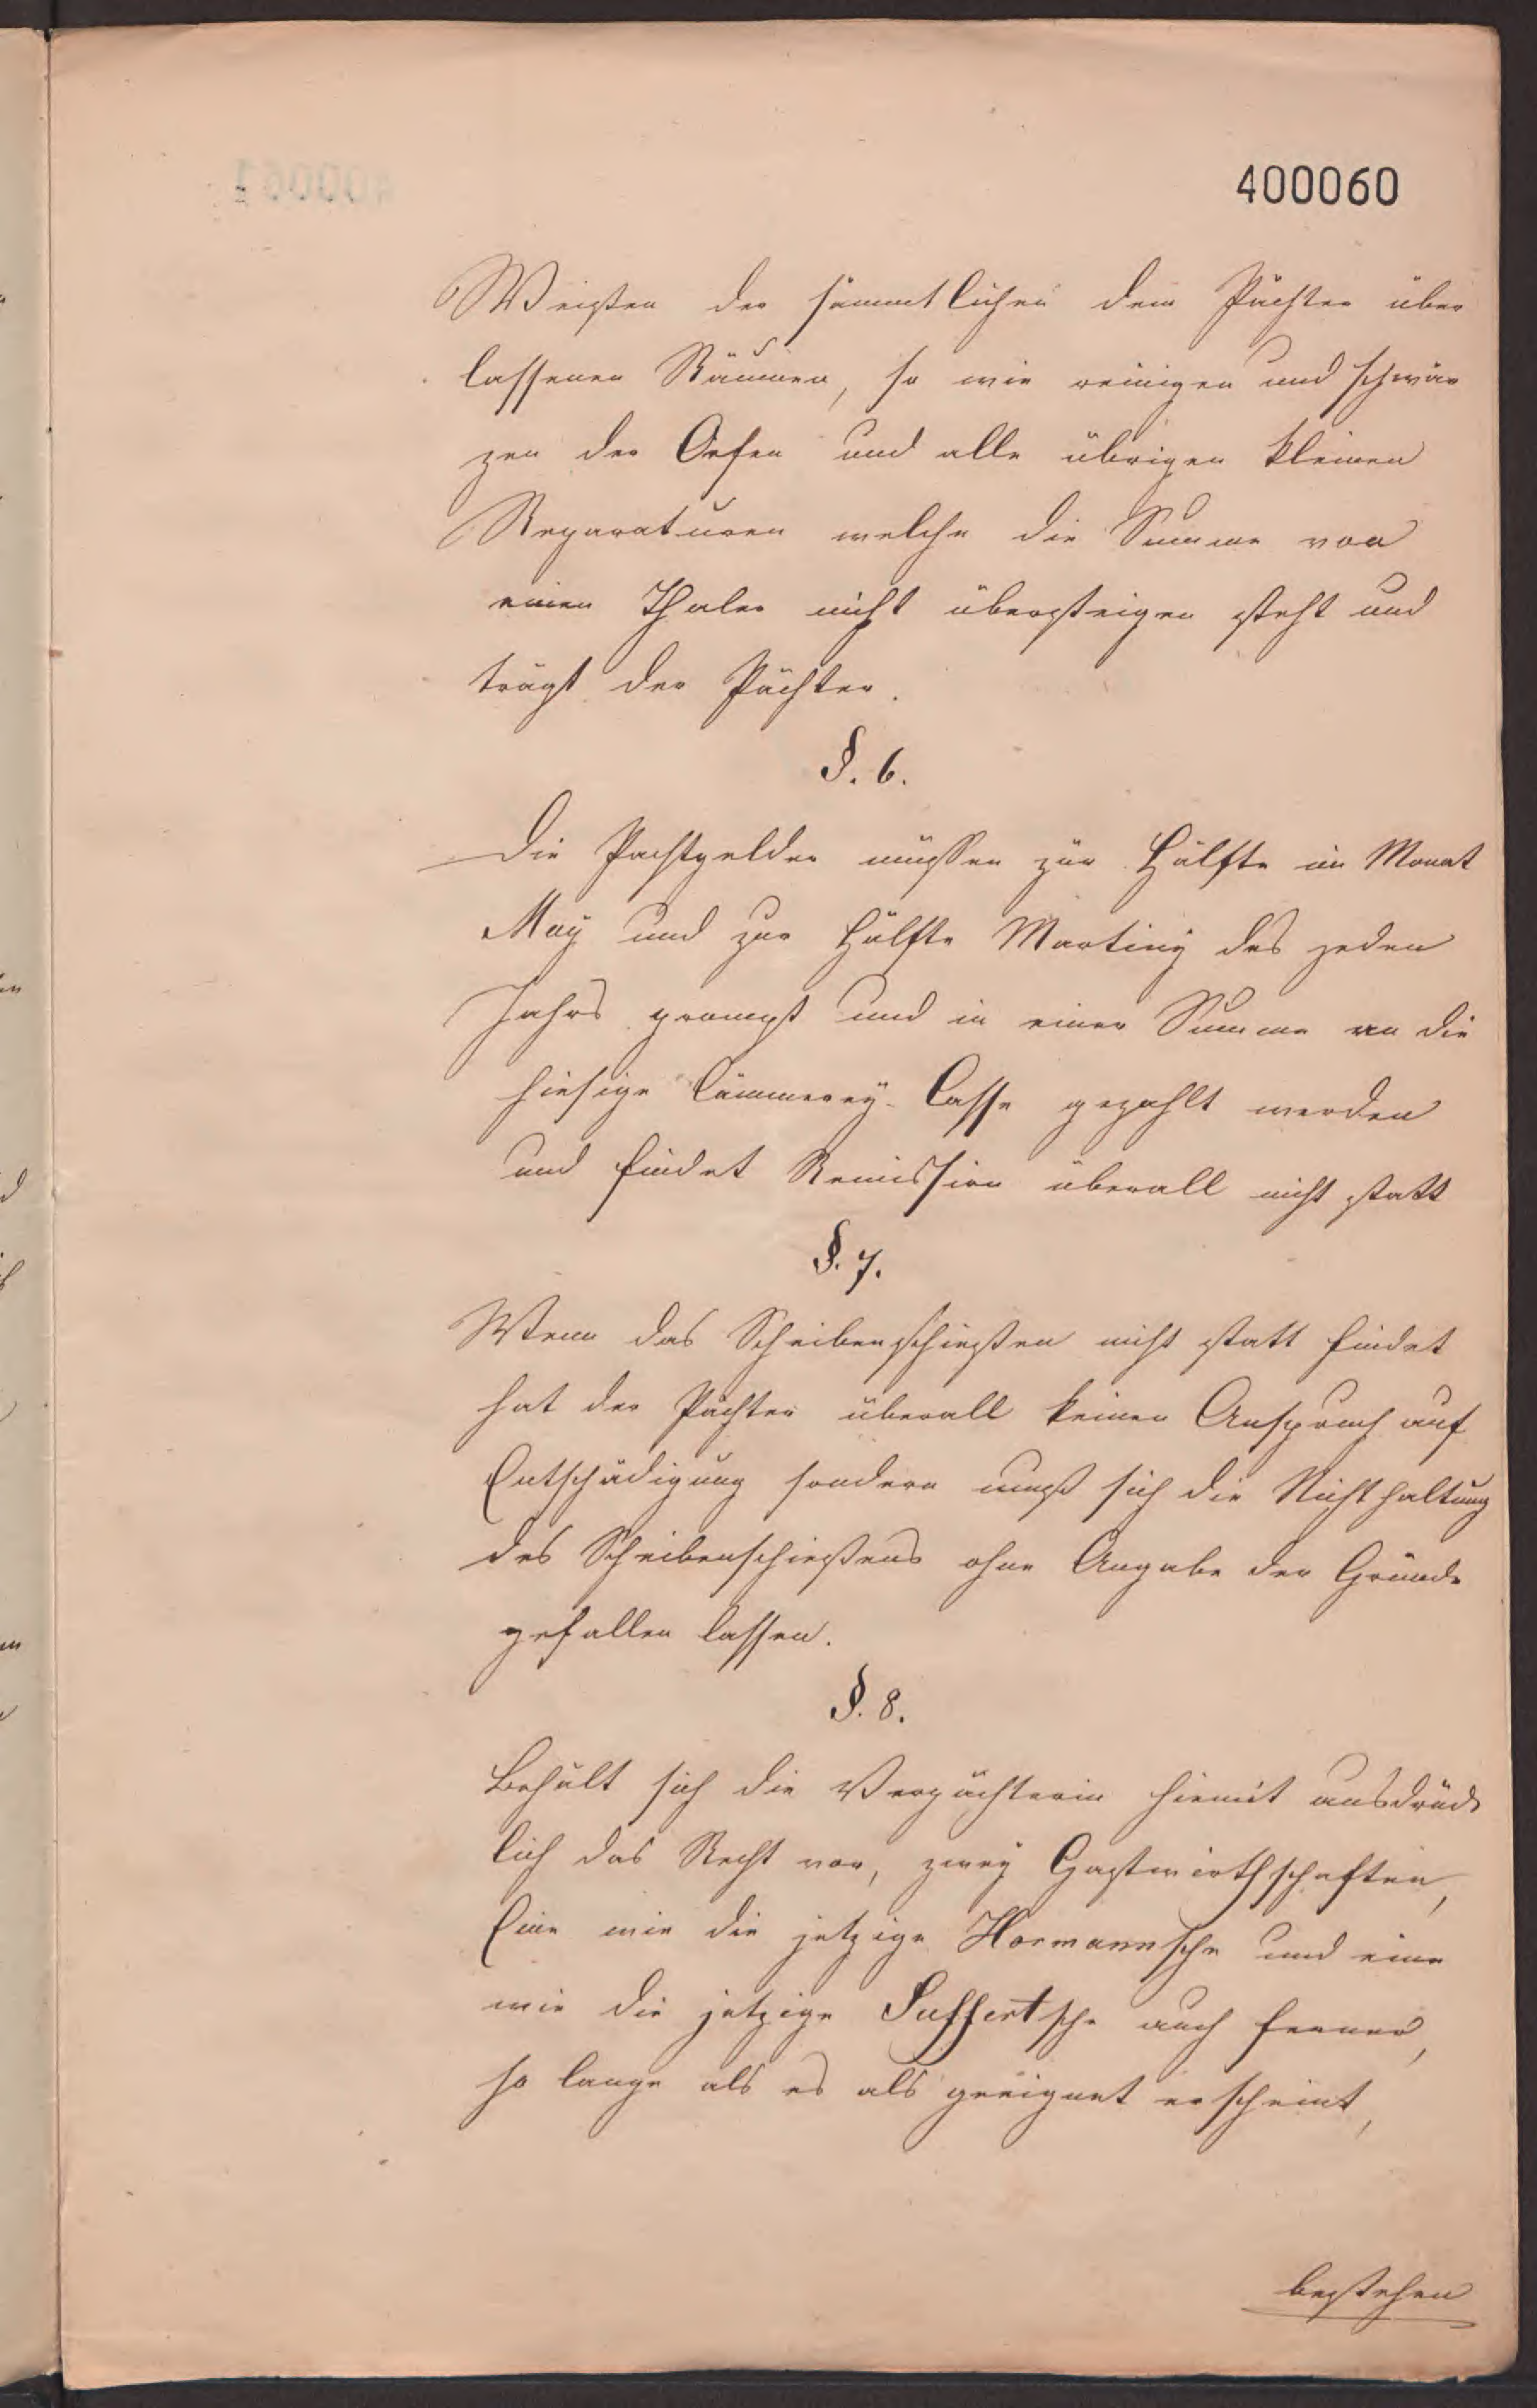 400060
Weißen der sämmtlichen dem Pächter über
lassenen Räumen, so wie reinigen und schwär
zen der Oefen und alle übrigen kleinen
Reparaturen welche die Summe von
einen Thaler nicht übersteigen steht und
trägt der Pächter.
§. 6.
Die Pachtgelder müssen zur Hälfte im Monat
May und zur Hälfte Martiny des jeden
Jahrs prompt und in einer Summe an die
hiesige Cämmerey-Casse gezahlt werden
und findet Remission überall nicht statt
§. 7.
Wenn das Scheibenschießen nicht statt findet
hat der Pächter überall keinen Anspruch auf
Entschädigung sondern muß sich die Nichthaltung
des Scheibenschießens ohne Angabe der Gründe
gefallen lassen.
§. 8.
Behält sich die Verpächterin hiemit ausdrück
lich das Recht vor, zwey Gastwirthschaften,
Eine wie die jetzige Hormannsche und eine
wie die jetzige Suffertsche auch ferner,
so lange als es als geeignet erscheint,
bestehen